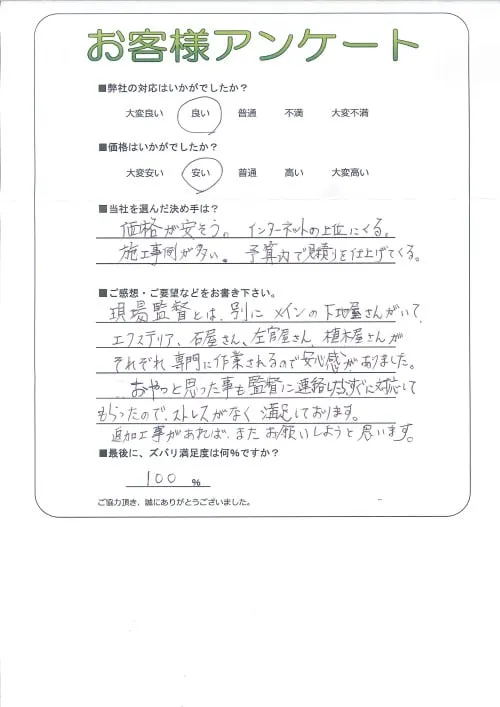 お客様アンケート
■弊社の対応はいかがでしたか?
大変良い 良い 普通 不満 大変不満
■価格はいかがでしたか?
大変安い 安い 普通 高い 大変高い
■当社を選んだ決め手は?
価格が安そう。 インターネットの上位にくる。
施工事例が多い。 予算内で見積りを仕上げてくる。
■ご感想・ご要望などをお書き下さい。
現場監督とは、別に メインの下地屋さんがいて、
エクステリア、石屋さん、左官屋さん、植木屋さんが
それぞれ専門に作業されるので安心感がありました。
おやっと思った事も監督に連絡したらすぐに対応して
もらったので、ストレスがなく満足しております。
追加工事があれば、またお願いしようと思います。
■最後に、ズバリ満足度は何%ですか?
100 %
ご協力頂き、誠にありがとうございました。